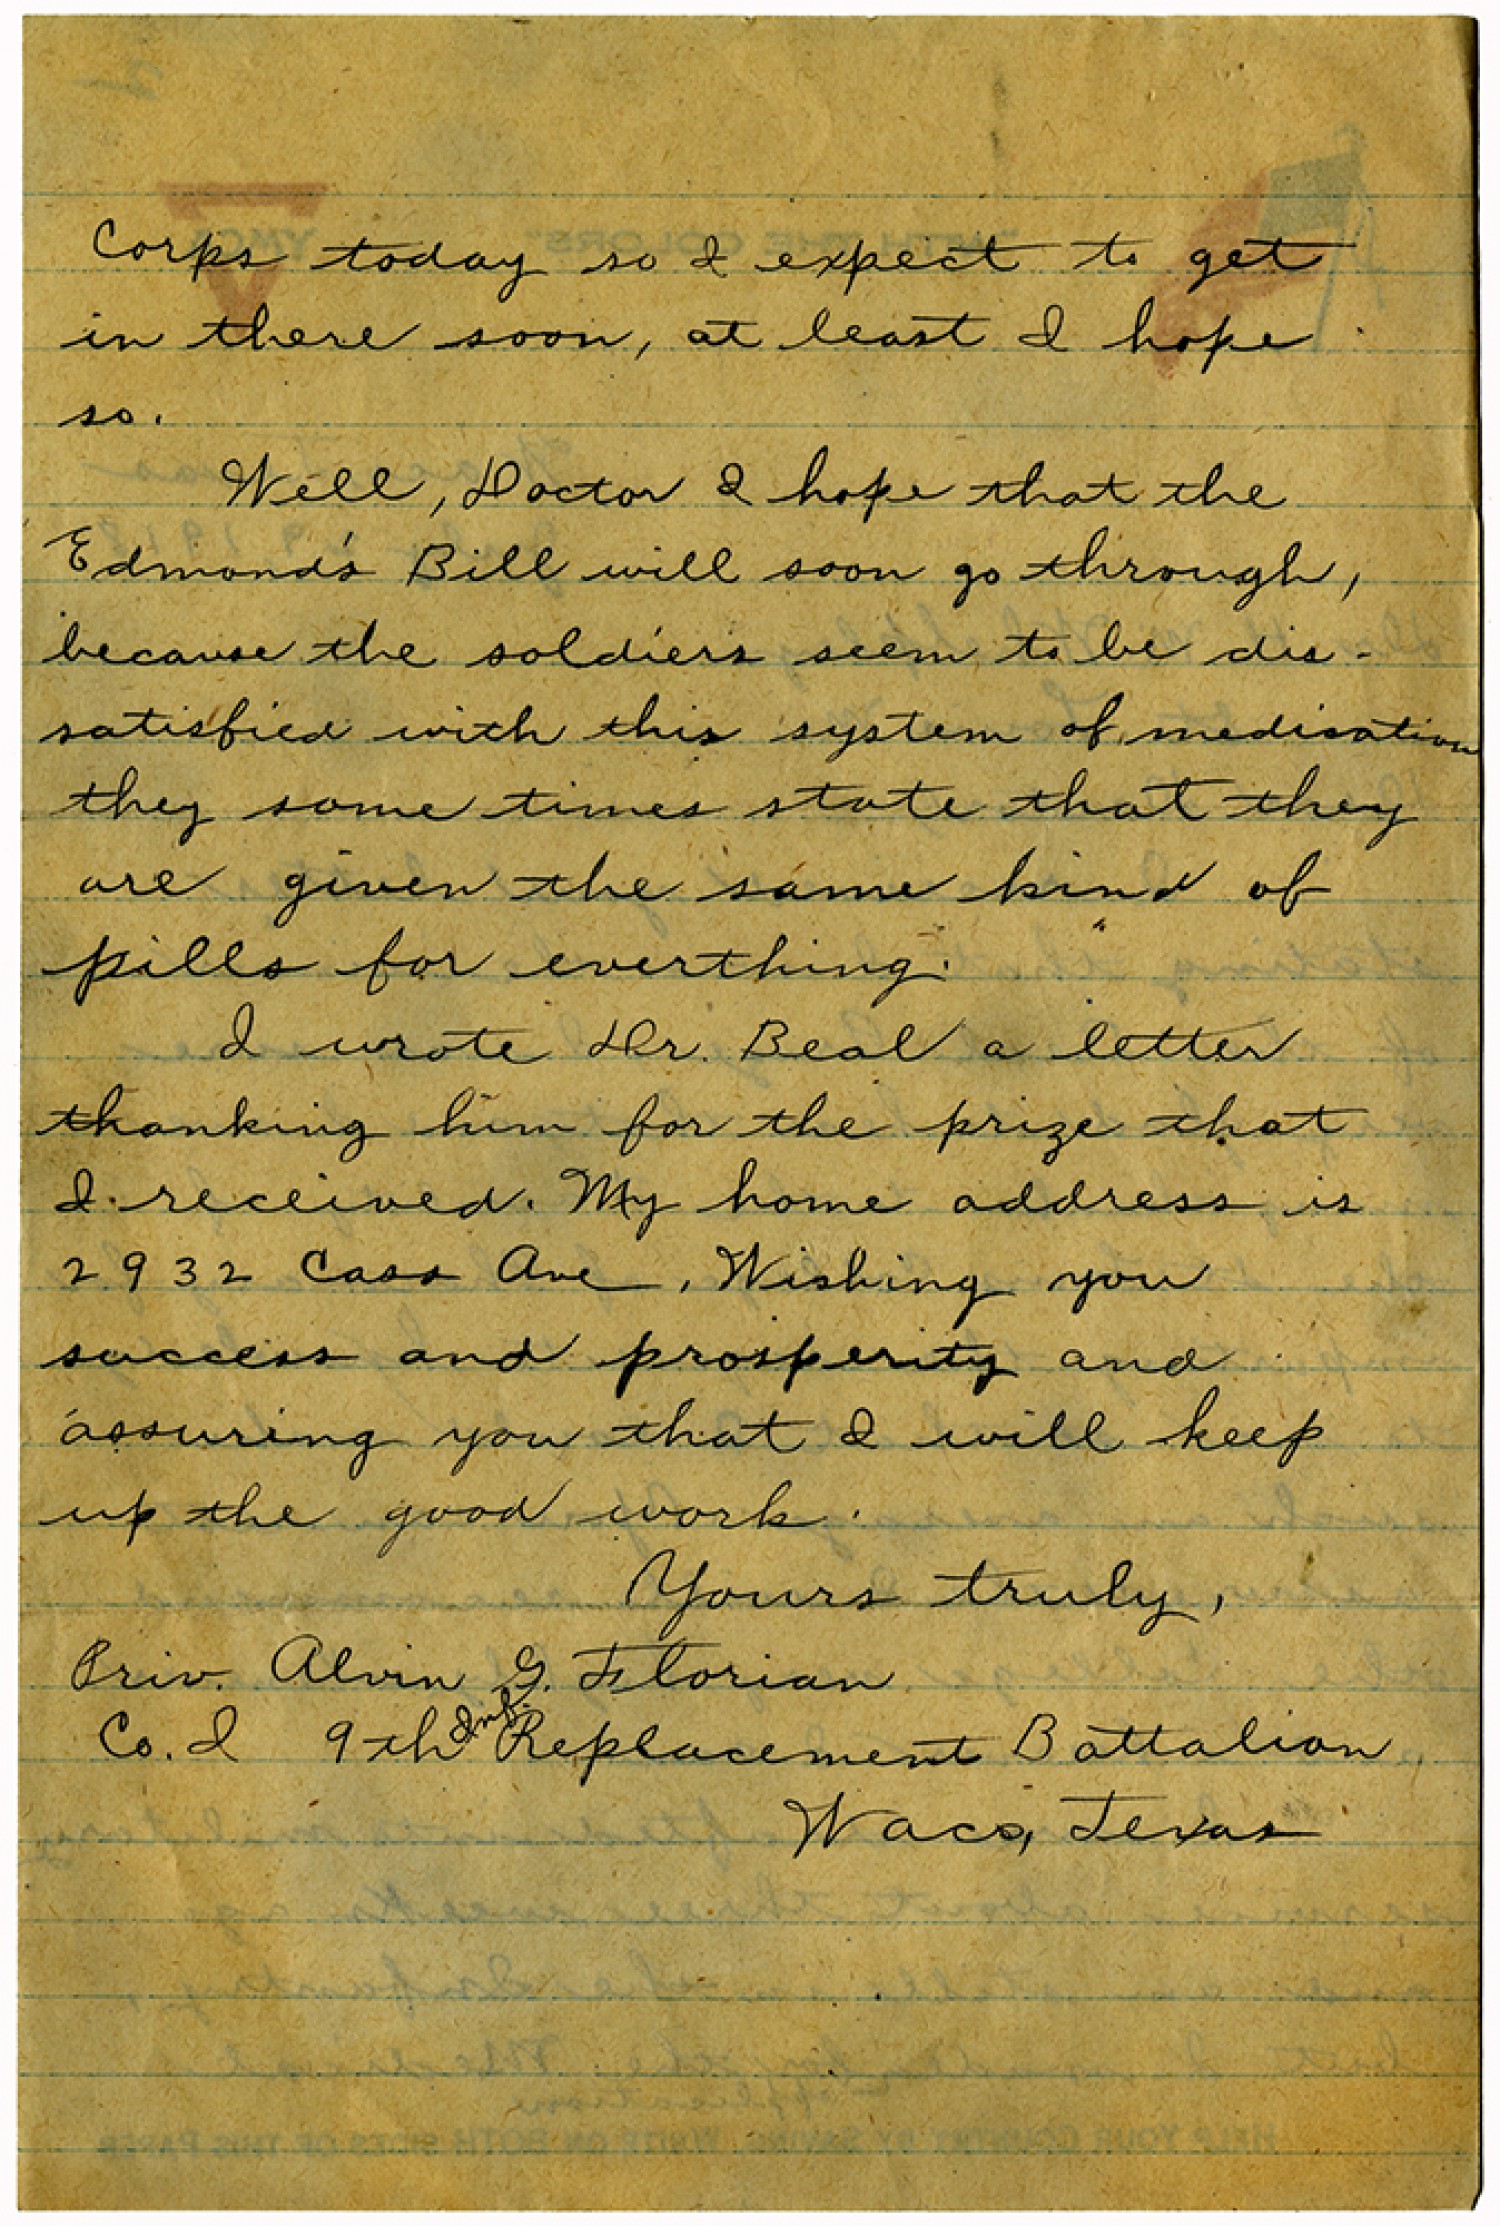 Corps today so I expect to get
in there soon, at least I hope
so.
Well, Doctor I hope that the
Edmond's Bill will soon go through,
because the soldiers seem to be dis-
satisfied with this system of medisation
they some times state that they
are given the same kind of
pills for everthing.
I wrote Dr. Beal a letter
thanking him for the prize that
I received. My home address is
2932 Cass Ave, Wishing you
success and prosperity and
assuring you that I will keep
up the good work.
Yours truly,
Priv. Alvin G. Florian
Co. I 9th Inf. Replacement Battalion,
Waco, Texas
"WITH THE COLORS"
YMCA
HELP YOUR COUNTRY BY SAVING. WRITE ON BOTH SIDES OF THIS PAPER